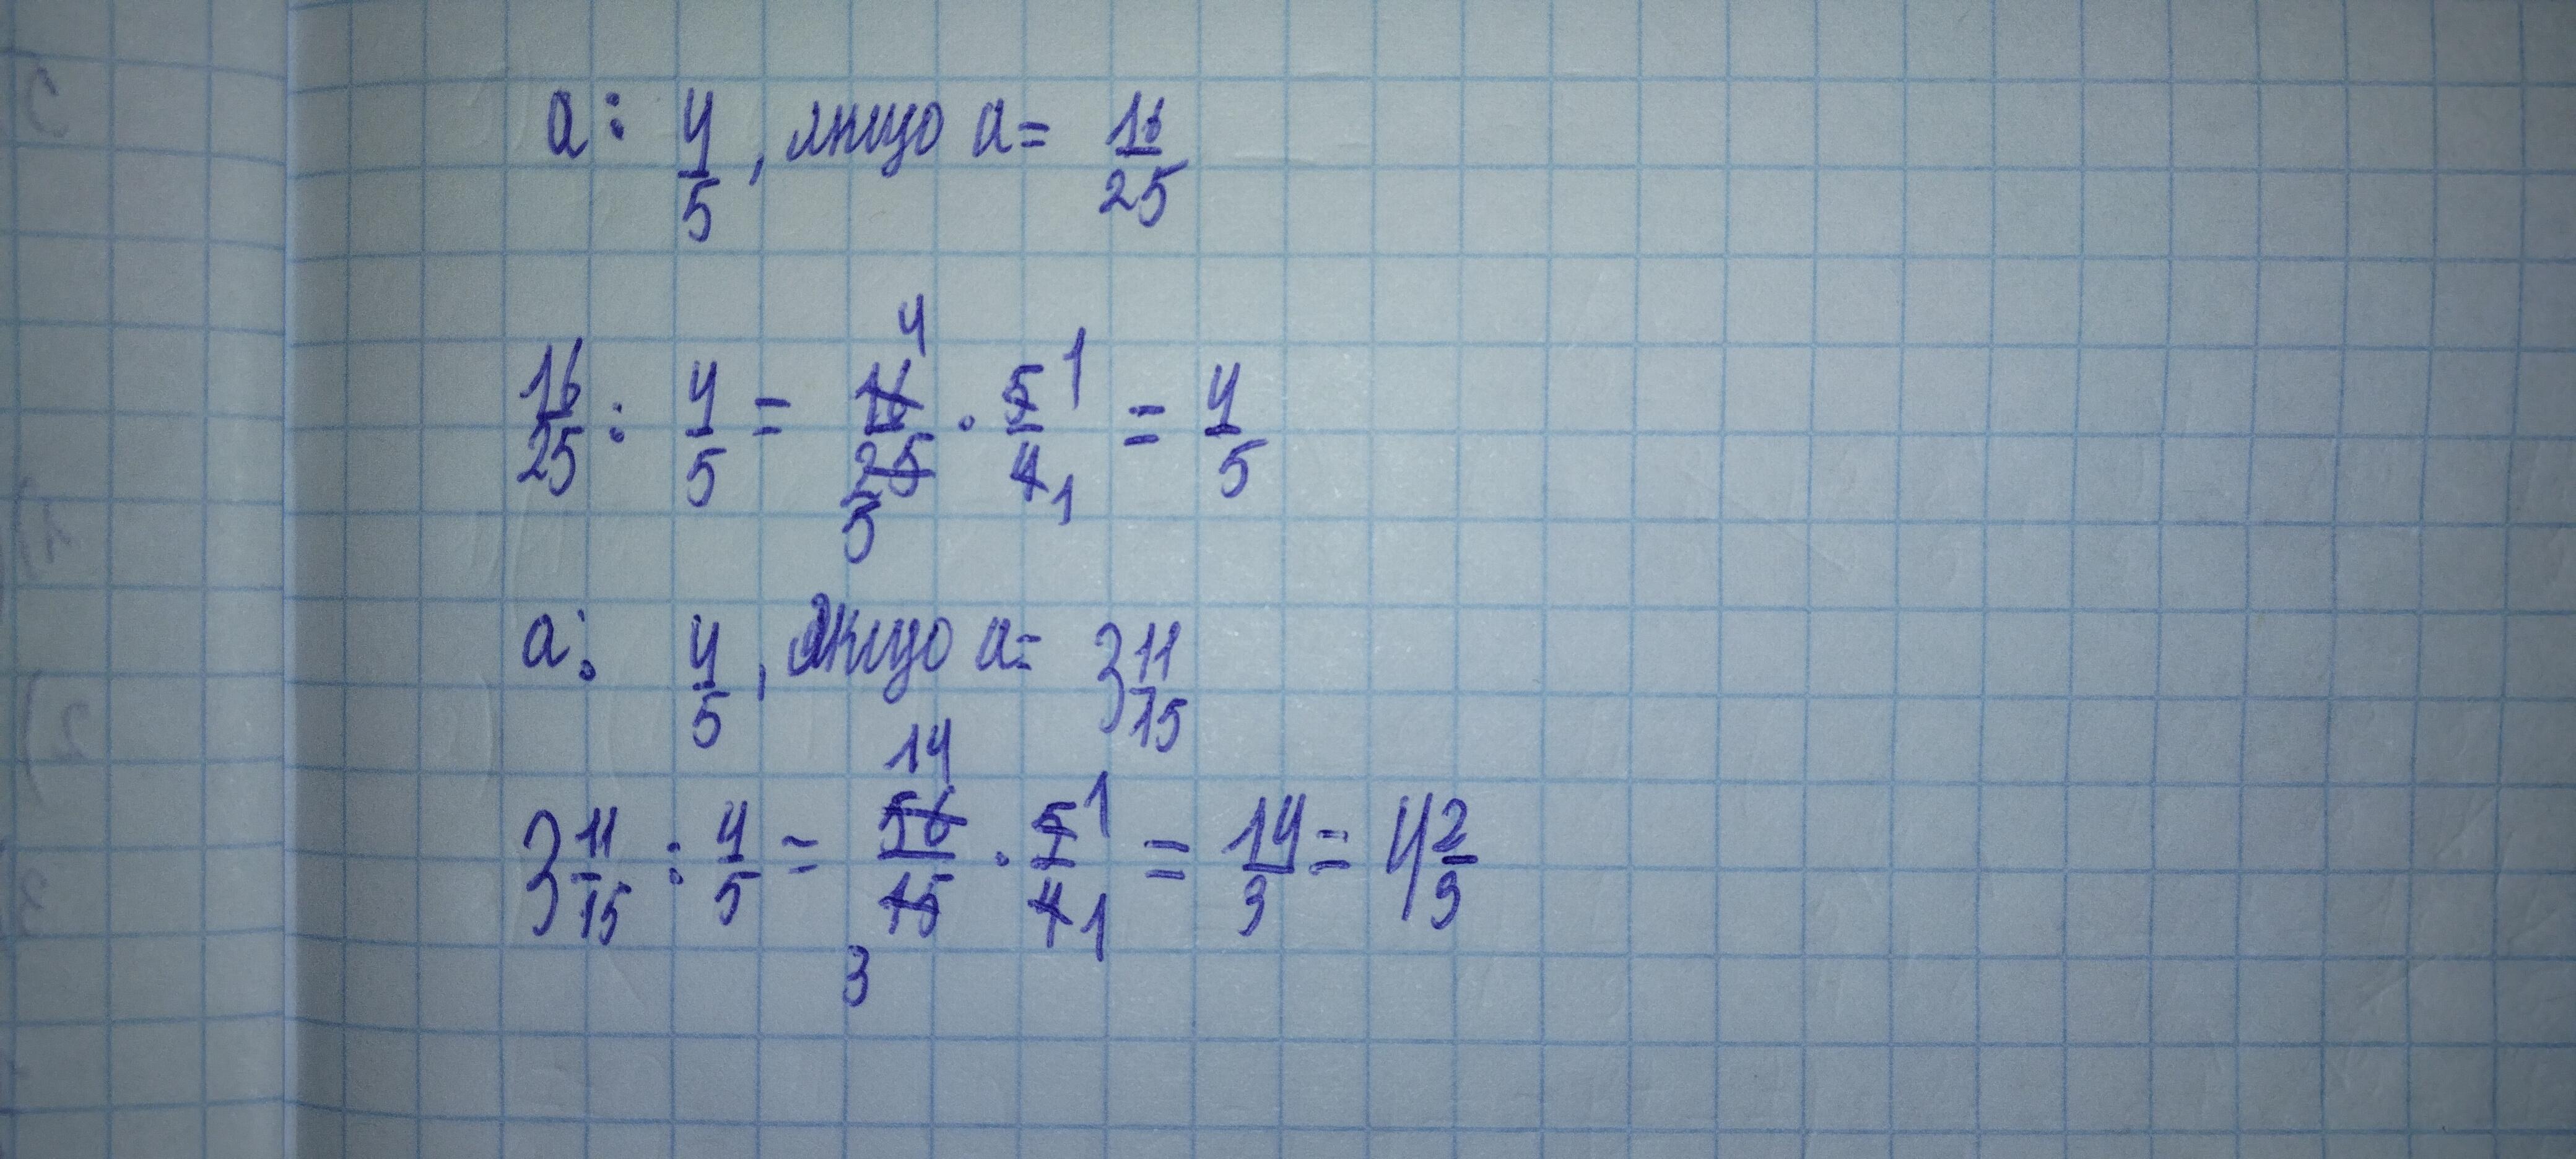 a: 4/5, якщо a= 16/25
16/25 : 4/5 = 16/25 4 5 · 5/4 1 1 = 4/5
a: 4/5, якщо a= 3 11/15
3 11/15 : 4/5 = 56/15 14 3 · 5/4 1 1 = 14/3 = 4 2/3